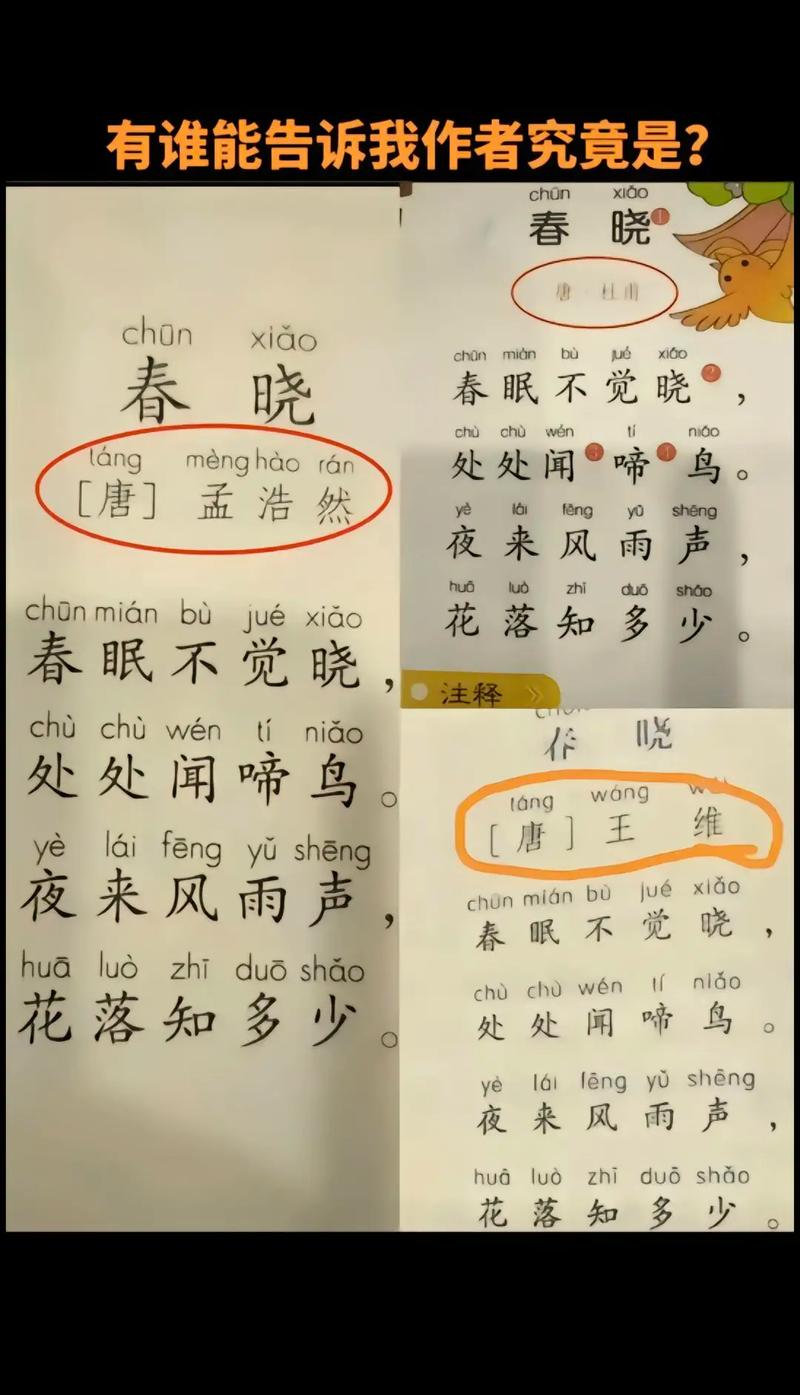 有谁能告诉我作者究竟是？
chūn xiǎo
春 晓
táng mèng hào rán
[唐] 孟 浩 然
chūn mián bù jué xiǎo
春 眠 不 觉 晓，
chù chù wén tí niǎo
处 处 闻 啼 鸟。
yè lái fēng yǔ shēng
夜 来 风 雨 声，
huā luò zhī duō shǎo
花 落 知 多 少。
chūn xiǎo
春 晓1
唐·杜甫
chūn mián bù jué xiǎo
春 眠 不 觉 晓2，
chù chù wén tí niǎo
处 处 闻3 啼4 鸟。
yè lái fēng yǔ shēng
夜 来 风 雨 声，
huā luò zhī duō shǎo
花 落 知 多 少。
注释
春 晓
táng wáng
[唐] 王 维
chūn mián bù jué xiǎo
春 眠 不 觉 晓，
chù chù wén tí niǎo
处 处 闻 啼 鸟。
yè lái fēng yǔ shēng
夜 来 风 雨 声，
huā luò zhī duō shǎo
花 落 知 多 少。